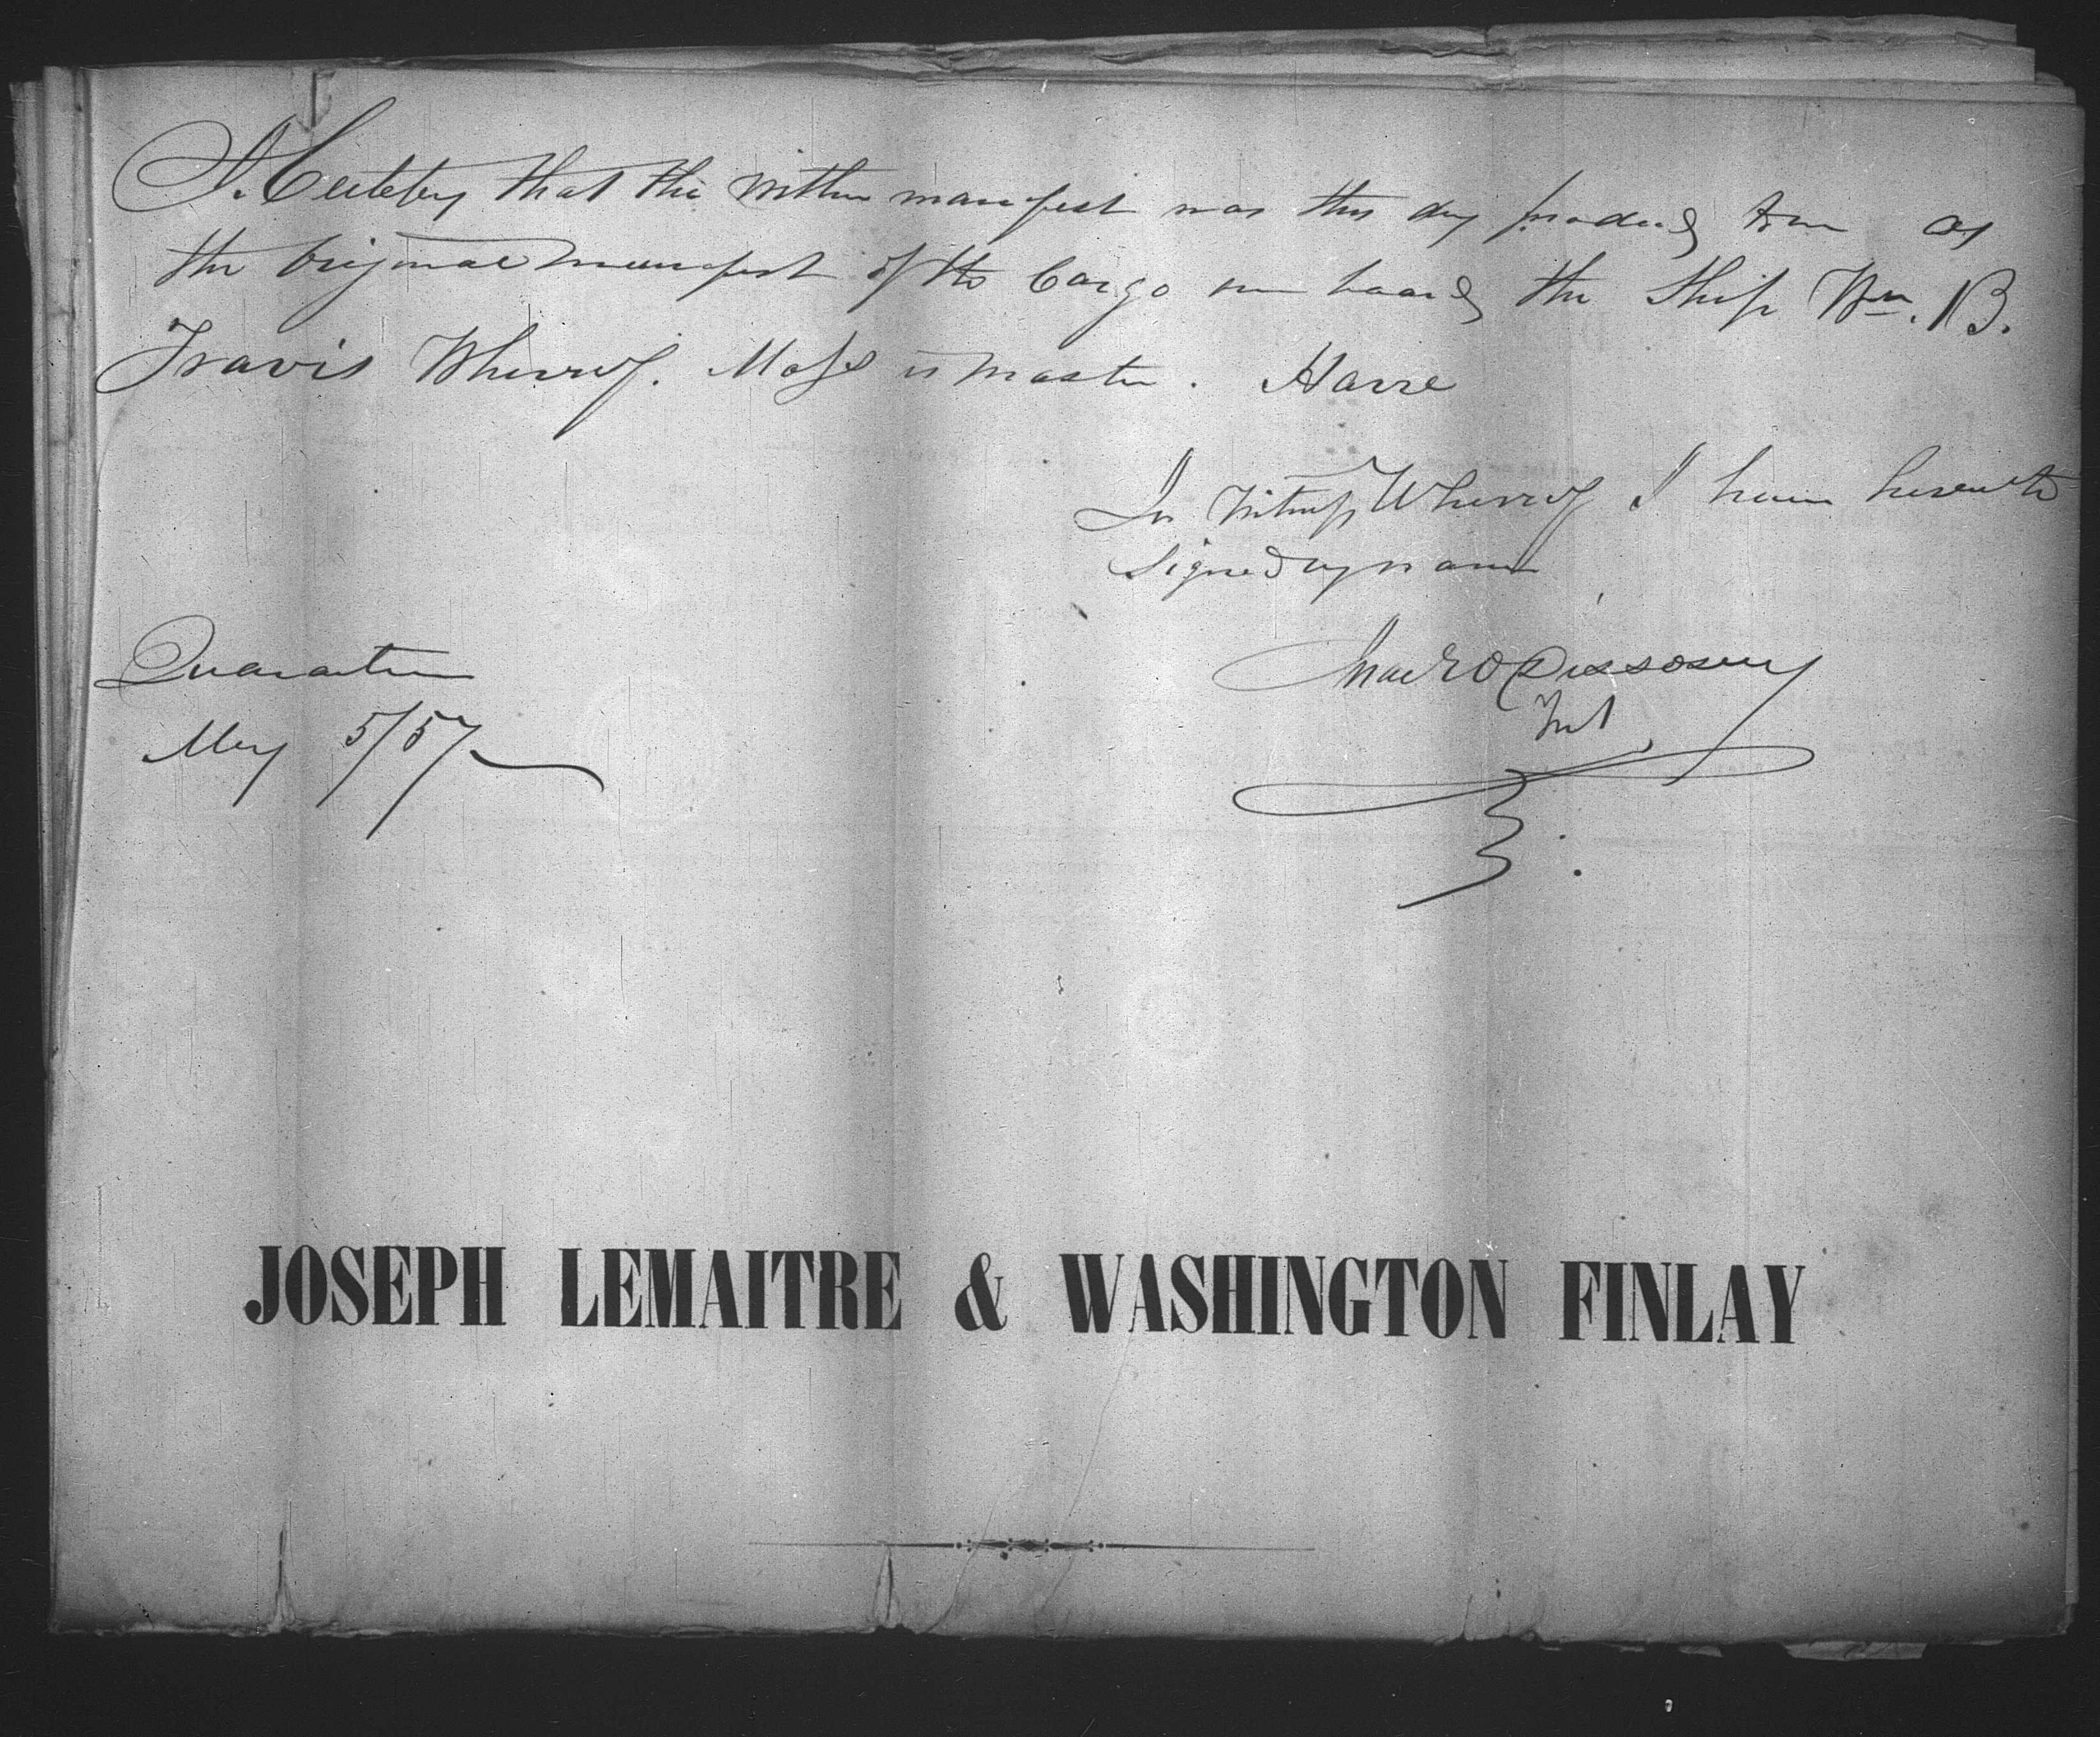 I Certify that the within manifest was this day produced to me as
the Original manifest of the Cargo on board the Ship Wm. B.
Travis Whereof. Moses is master. Havre
In Witness Whereof I have hereunto
signed my name
Inst
Quarantine
May 5/57
JOSEPH LEMAITRE & WASHINGTON FINLAY